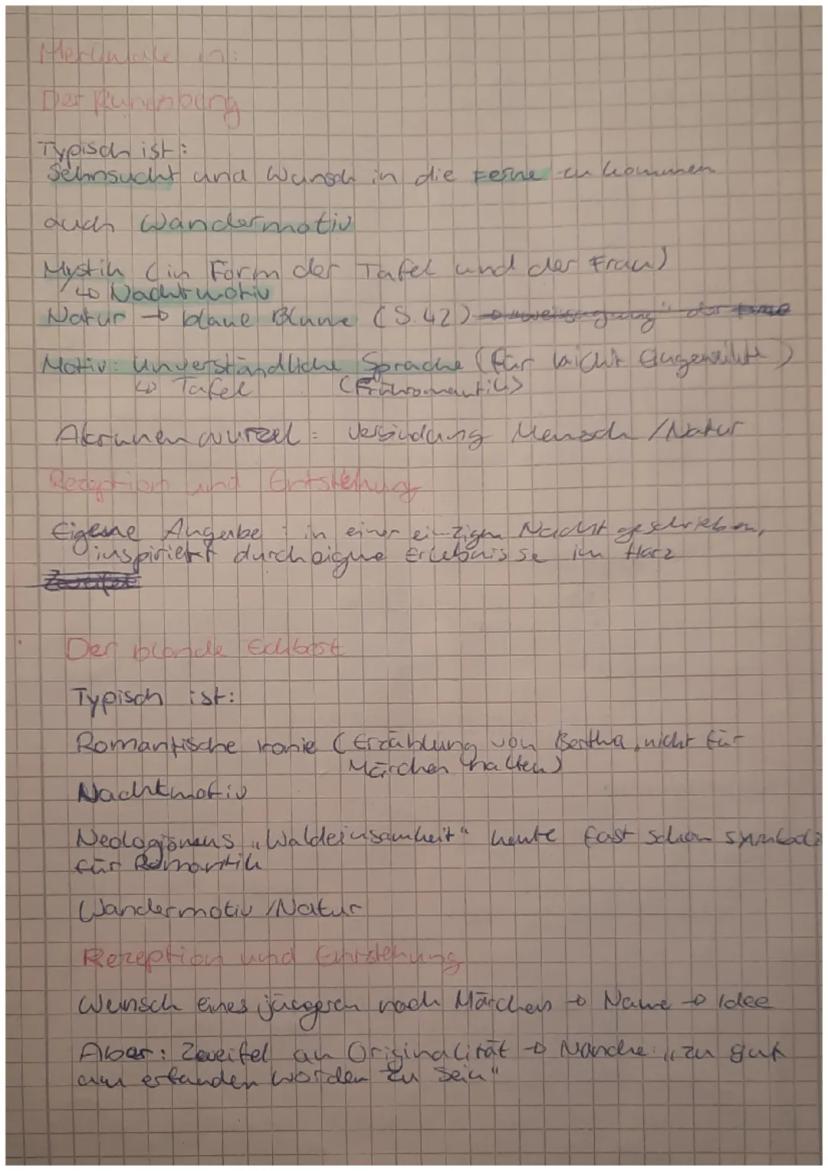 Merkmale in:
Der Runenberg
Typisch ist:
Sehnsucht und Wunsch in die Ferne zu kommen
auch Wandermotiv
Mystik (in Form der Tafel und der Frau)
↳ Nachtmotiv
Natur → blaue Blume (S. 42)
Motiv: Unverständliche Sprache (für nicht Eingeweihte)
↳ Tafel (Frühromantik)
Alrunenwurzel: Verbindung Mensch/Natur
Rezeption und Entstehung
Eigene Angabe: in einer einzigen Nacht geschrieben,
inspiriert durch eigne Erlebnisse im Harz
Der blonde Eckbert
Typisch ist:
Romantische Ironie (Erzählung von Bertha, nicht für
Märchen halten)
Nachtmotiv
Neologismus „Waldeinsamkeit" heute fast schon symbol
für Romantik
Wandermotiv/Natur
Rezeption und Entstehung
Wunsch eines nach Märchen → Name → Idee
Aber: Zweifel an Originalität → Manche: „zu gut
um erfunden worden zu sein"